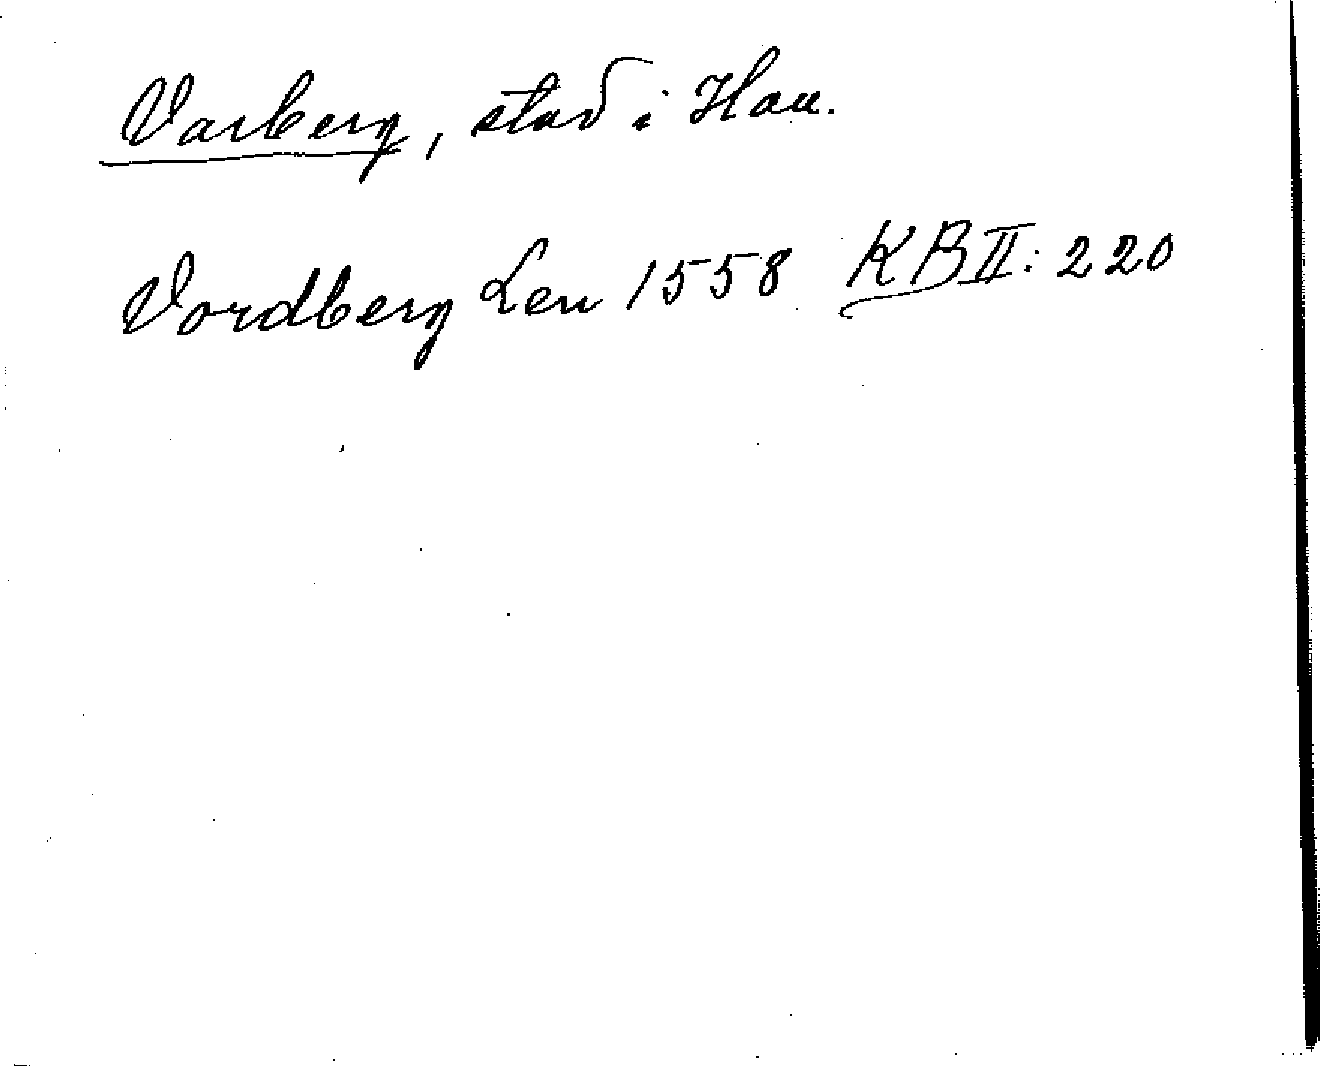 Varberg, stad i Hall.
Vordberg Len 1558 KB II: 220